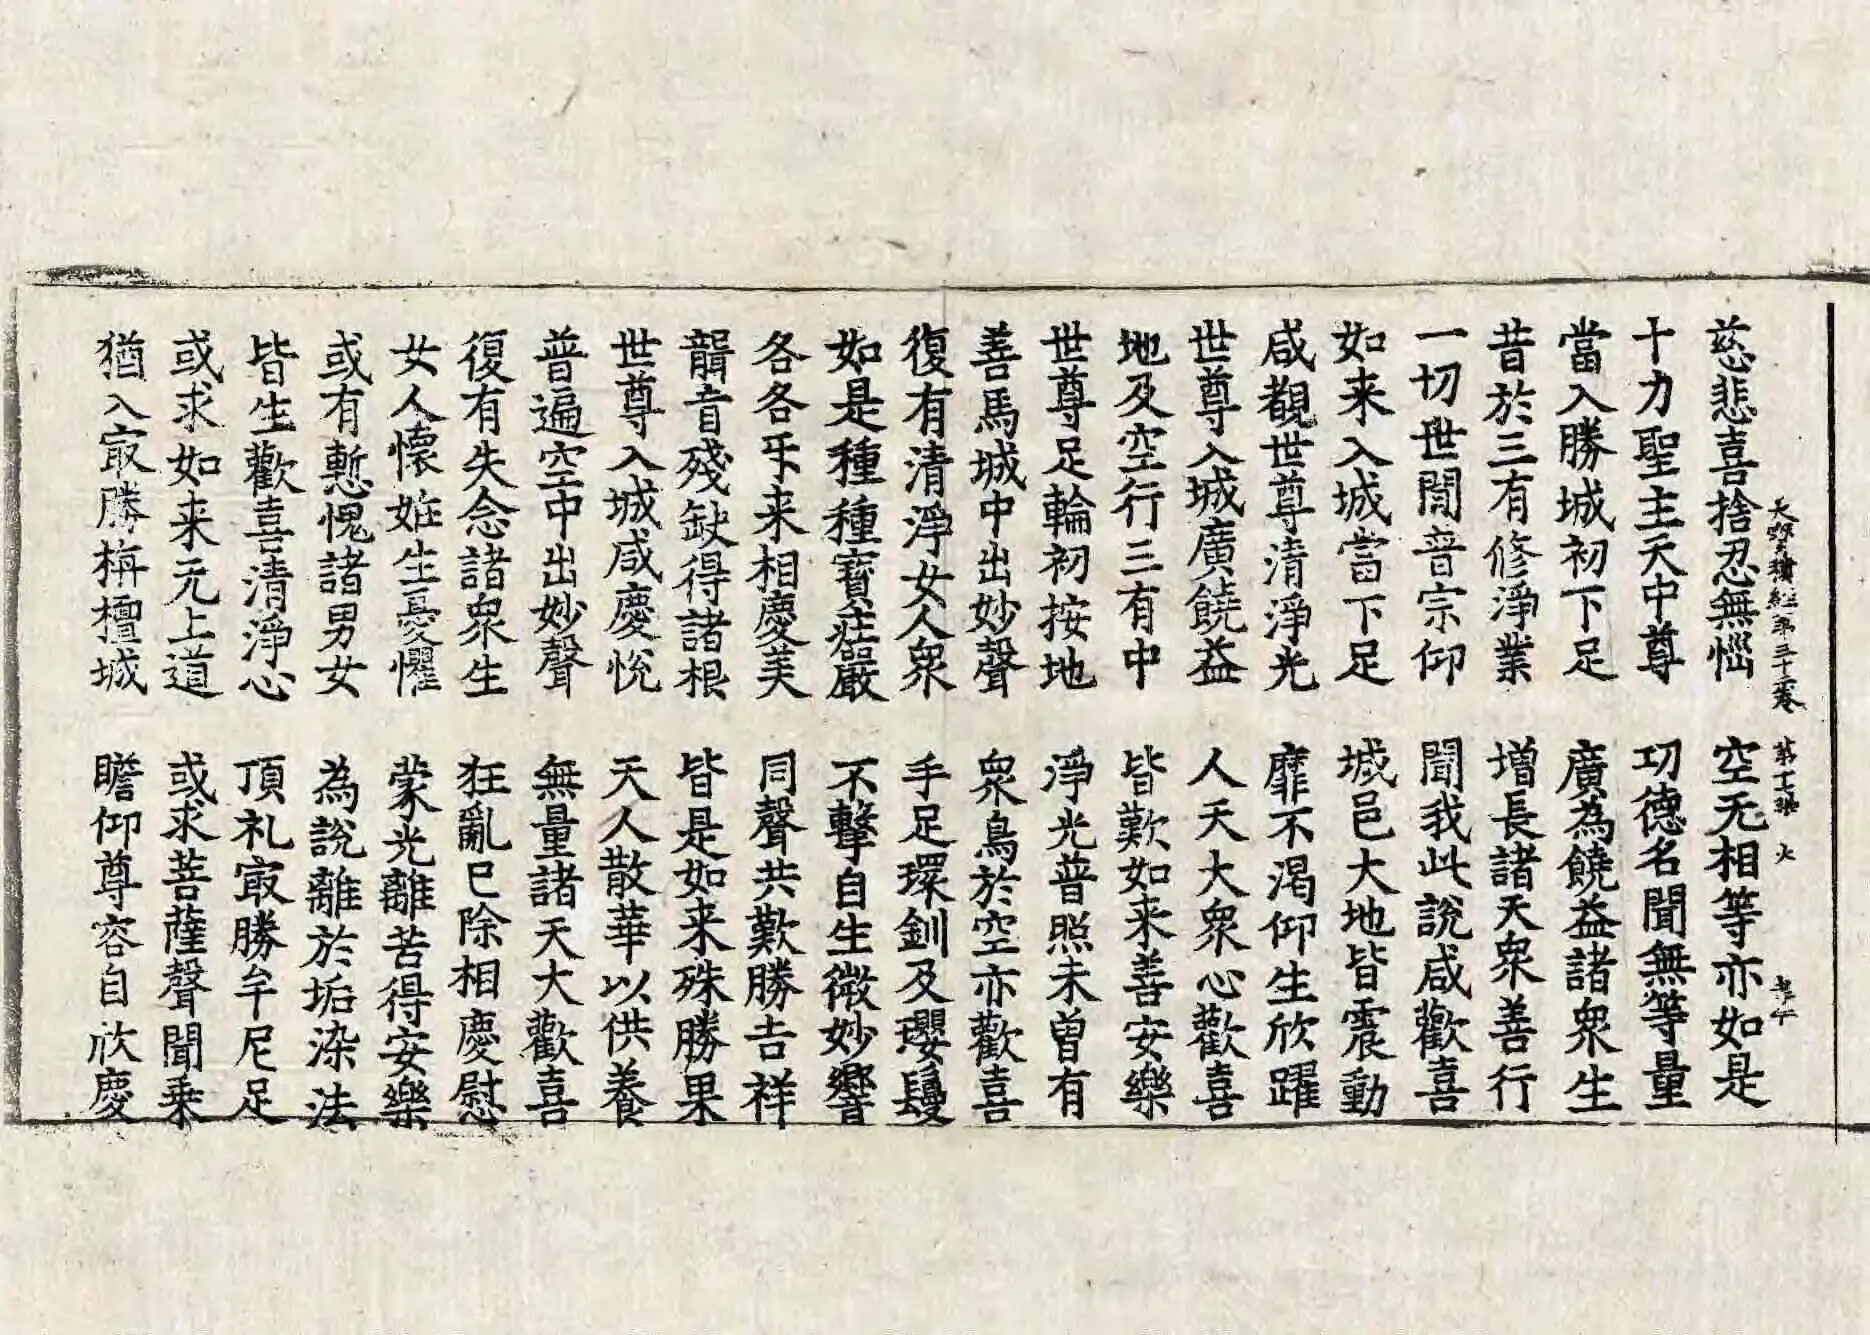 大寶積經第三十六卷 第十七張 火
慈悲喜捨忍無惱 空无相等亦如是
十力聖主天中尊 功德名聞無等量
當入勝城初下足 廣為饒益諸衆生
昔於三有修淨業 增長諸天衆善行
一切世間音宗仰 聞我此說咸歡喜
如来入城當下足 城邑大地皆震動
咸覩世尊清淨光 靡不渴仰生欣躍
世尊入城廣饒益 人天大衆心歡喜
地及空行三有中 皆歎如来善安樂
世尊足輪初按地 淨光普照未曾有
善馬城中出妙聲 衆鳥於空亦歡喜
復有清淨女人衆 手足環釧及瓔鬘
如是種種寶莊嚴 不擊自生微妙響
各各㸦来相慶美 同聲共歎勝吉祥
聾盲殘缺得諸根 皆是如来殊勝果
世尊入城咸慶悅 天人散華以供養
普遍空中出妙聲 無量諸天大歡喜
復有失念諸衆生 狂亂已除相慶慰
女人懷姙生憂懼 蒙光離苦得安樂
或有慙愧諸男女 為說離於垢染法
皆生歡喜清淨心 頂礼㝡勝牟尼足
或求如来无上道 或求菩薩聲聞乗
猶入㝡勝栴檀城 瞻仰尊容自欣慶